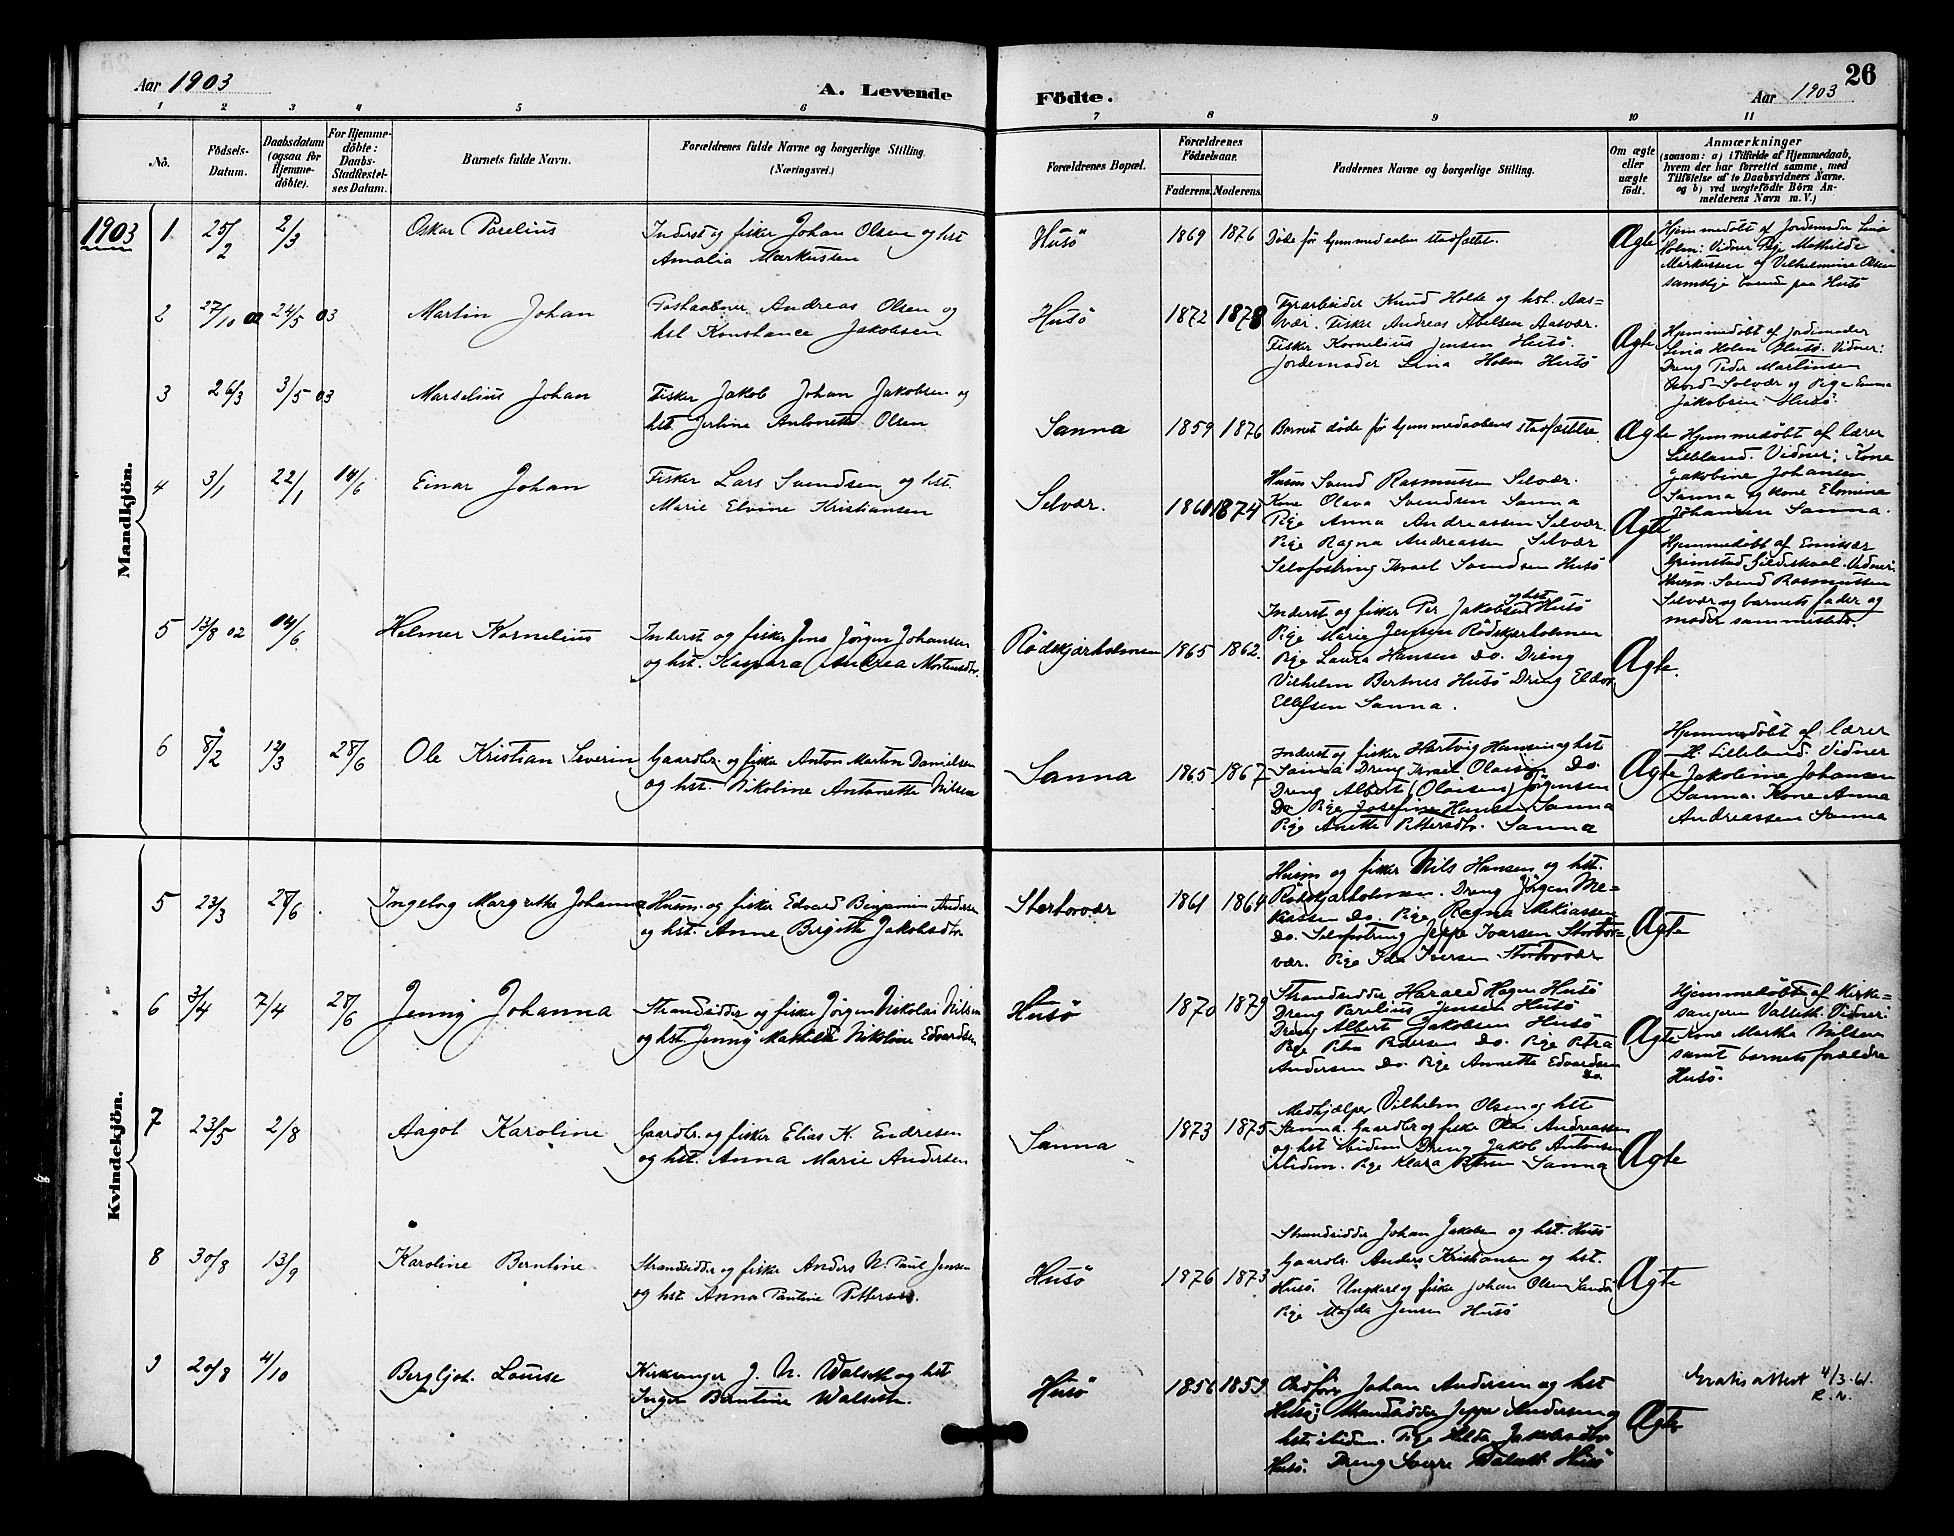 Aar 1903
A. Levende
Födte.
Aar 1903
26
1 2 3 4 5 6 7 8 9 10 11
No.
Födsels-Datum.
Daabsdatum (ogsaa for Hjemme-döbte).
For Hjemme-döbte: Daabs-Stadfæstel-ses Datum.
Barnets fulde Navn.
Forældrenes fulde Navne og borgerlige Stilling.
(Næringsvei.)
Forældrenes Bopæl.
Forældrenes Födselsaar.
Faderens. Moderens.
Faddernes Navne og borgerlige Stilling.
Om ægte eller uægte födt.
Anmærkninger
(saasom: a) i Tilfælde af Hjemmedaab, hvem der har forrettet samme, med Tilföielse af to Daabsvidners Navne, og b) ved uægtefödte Börn An-melderens Navn m. V.)
1903
Mandkjön.
1 25/2 2/3 Oskar Parelius
Inderst og fisker Johan Olsen og hst
Amalia Markussen
Husö 1869 1876
Döde för hjemmedaaben stadfæstet.
Ægte
Hjemmedöbt af Jordemoder Lina
Holm: Vidner Pige Mathilde
Markussen og Vilhelmine Olsen
samtlige boende paa Husö
2 27/10 02 24/5 03 Martin Johan
Postaabner Andreas Olsen og
hst Konstance Jakobsen
Husö 1872 1878
Fyrarbeider Knud Holte og hst. Aas=
vær. Fisker Andreas Abelsen Aasvær.
Fisker Kornelius Jensen Husö.
Jordemoder Lina Holm Husö
Ægte
Hjemmedöbt af Jordemoder
Lina Holm Husö. Vidner:
Dreng Peder Martinsen
Selvær og Pige Emma
Jakobsen Husö.
3 26/3 3/5 03 Marselius Johan
Fisker Jakob Johan Jakobsen og
hst Antonette Olsen
Sanna 1859 1876
Barnet döde för hjemmedaabens stadfæstelse.
Ægte
Hjemmedöbt af lærer
Lilleland. Vidner: Kone
Jakobine Johansen
Sanna og Kone
Johansen Sanna.
4 3/1 22/1 14/6 Einar Johan
Fisker Lars Svendsen og hst.
Marie Elvine Kristiansen
Selvær. 1874
Husm Svend Rasmussen Selvær.
Kone Olava Svendsen Sanna
Pige Anna Andreassen Selvær.
Pige Ragna Andreassen Selvær
Selvfostring Israel Svendsen Husö
Ægte
Hjemmedöbt af Emissær
Grimstad Gildeskaal. Vidner:
Husm. Svend Rasmussen
Selvær og barnets fader og
moder sammesteds.
5 13/8 02 14/6 Helmer Kornelius
Inderst og fisker Jens Jörgen Johansen
og hst. Kaspara Andrea Mortensdtr.
Rödskjærholmen 1865 1862.
Inderst og fisker Per Jakobsen og hst Husö
Pige Marie Jensen Rödskjærholmen
Pige Laura Hansen do. Dreng
Vilhelm Bertnes Husö Dreng Eldor
Ellefsen Sanna.
Ægte.
6 8/2 12/3 28/6 Ole Kristian Severin
Gaardbr. og fisker Anton Martin Danielsen
og hst. Nikoline Antonette Nilsen
Sanna 1865 1867
Inderst og fisker Hartvig Hansen og hst
Sanna Dreng Israel Olaisen Do.
Dreng Albert (Olaisen) Jörgensen
Do. Pige Josefine Hansen Sanna
Pige Anette Pettersdtr. Sanna
Ægte
Hjemmedöbt af lærer
H. Lilleland. Vidner
Jakobine Johansen
Sanna. Kone Anna
Andreassen Sanna
Kvindekjön.
5 23/3 28/6 Ingeborg Margrethe Johanna
Husm. og fisker Edvard Benjamin Andersen
og hst. Anne Birgitte Jakobsdtr.
Stortorvær 1861 1864
Husm og fisker Nils Hansen og hst.
Rödskjærholmen. Dreng Jörgen Me=
kiassen do. Pige Ragna Mekiassen
do. Selvfostring Jeppe Ivarsen Stortor=
vær. Pige Ida Iversen Stortorvær
Ægte
6 3/4 7/4 28/6 Jenny Johanna
Strandsidder og fisker Jörgen Nikolai Nilsen
og hst. Jenny Mathilde Nikoline Edvardsen
Husö 1870 1879
Strandsidder Harald Hagen Husö
Dreng Parelius Jensen Husö
Dreng Albert Jakobsen Husö
Pige Petersen Do. Pige Petra
Andersen Do. Pige Annette Edvardsen
Do.
Ægte
Hjemmedöbt af Kirke=
sangeren Valseth. Vidner:
Kone Martha Nilsen
samt barnets forældre
Husö.
7 23/5 2/8 Aagot Karoline
Gaardbr. og fisker Elias K. Endresen
og hst. Anna Marie Andersen
Sanna 1873 1875
Medhjælper Vilhelm Olsen og hst
Sanna. Gaardbr og fisker Olai Andreassen
og hst ibidem Dreng Jakob Antonsen
ibidem. Pige Klara Petersen Sanna
Ægte
8 30/8 13/9 Karoline Berntine
Strandsidder og fisker Anders N. Paul Jensen
og hst Anna Pauline Pettersen.
Husö 1876 1873
Strandsidder Johan Jakobsen og hst. Husö
Gaardbr. Anders Kristiansen og hst.
Husö. Ungkarl og fisker Johan Olsen
Pige Magda Jensen Husö
Ægte
9 20/8 4/10 Bergljot Louise
Kirkesanger J. N. Walseth og hst
Inger Berntine Walseth.
Husö 1856 1859
Ordförer Johan Andersen og hst
Husö; Strandsidder Jeppe Andersen og
hst ibidem. Pige Hilda Jakobsdtr
Husö. Dreng Sverre Walseth Husö
Ægte
Gratis attest 4/3-61.